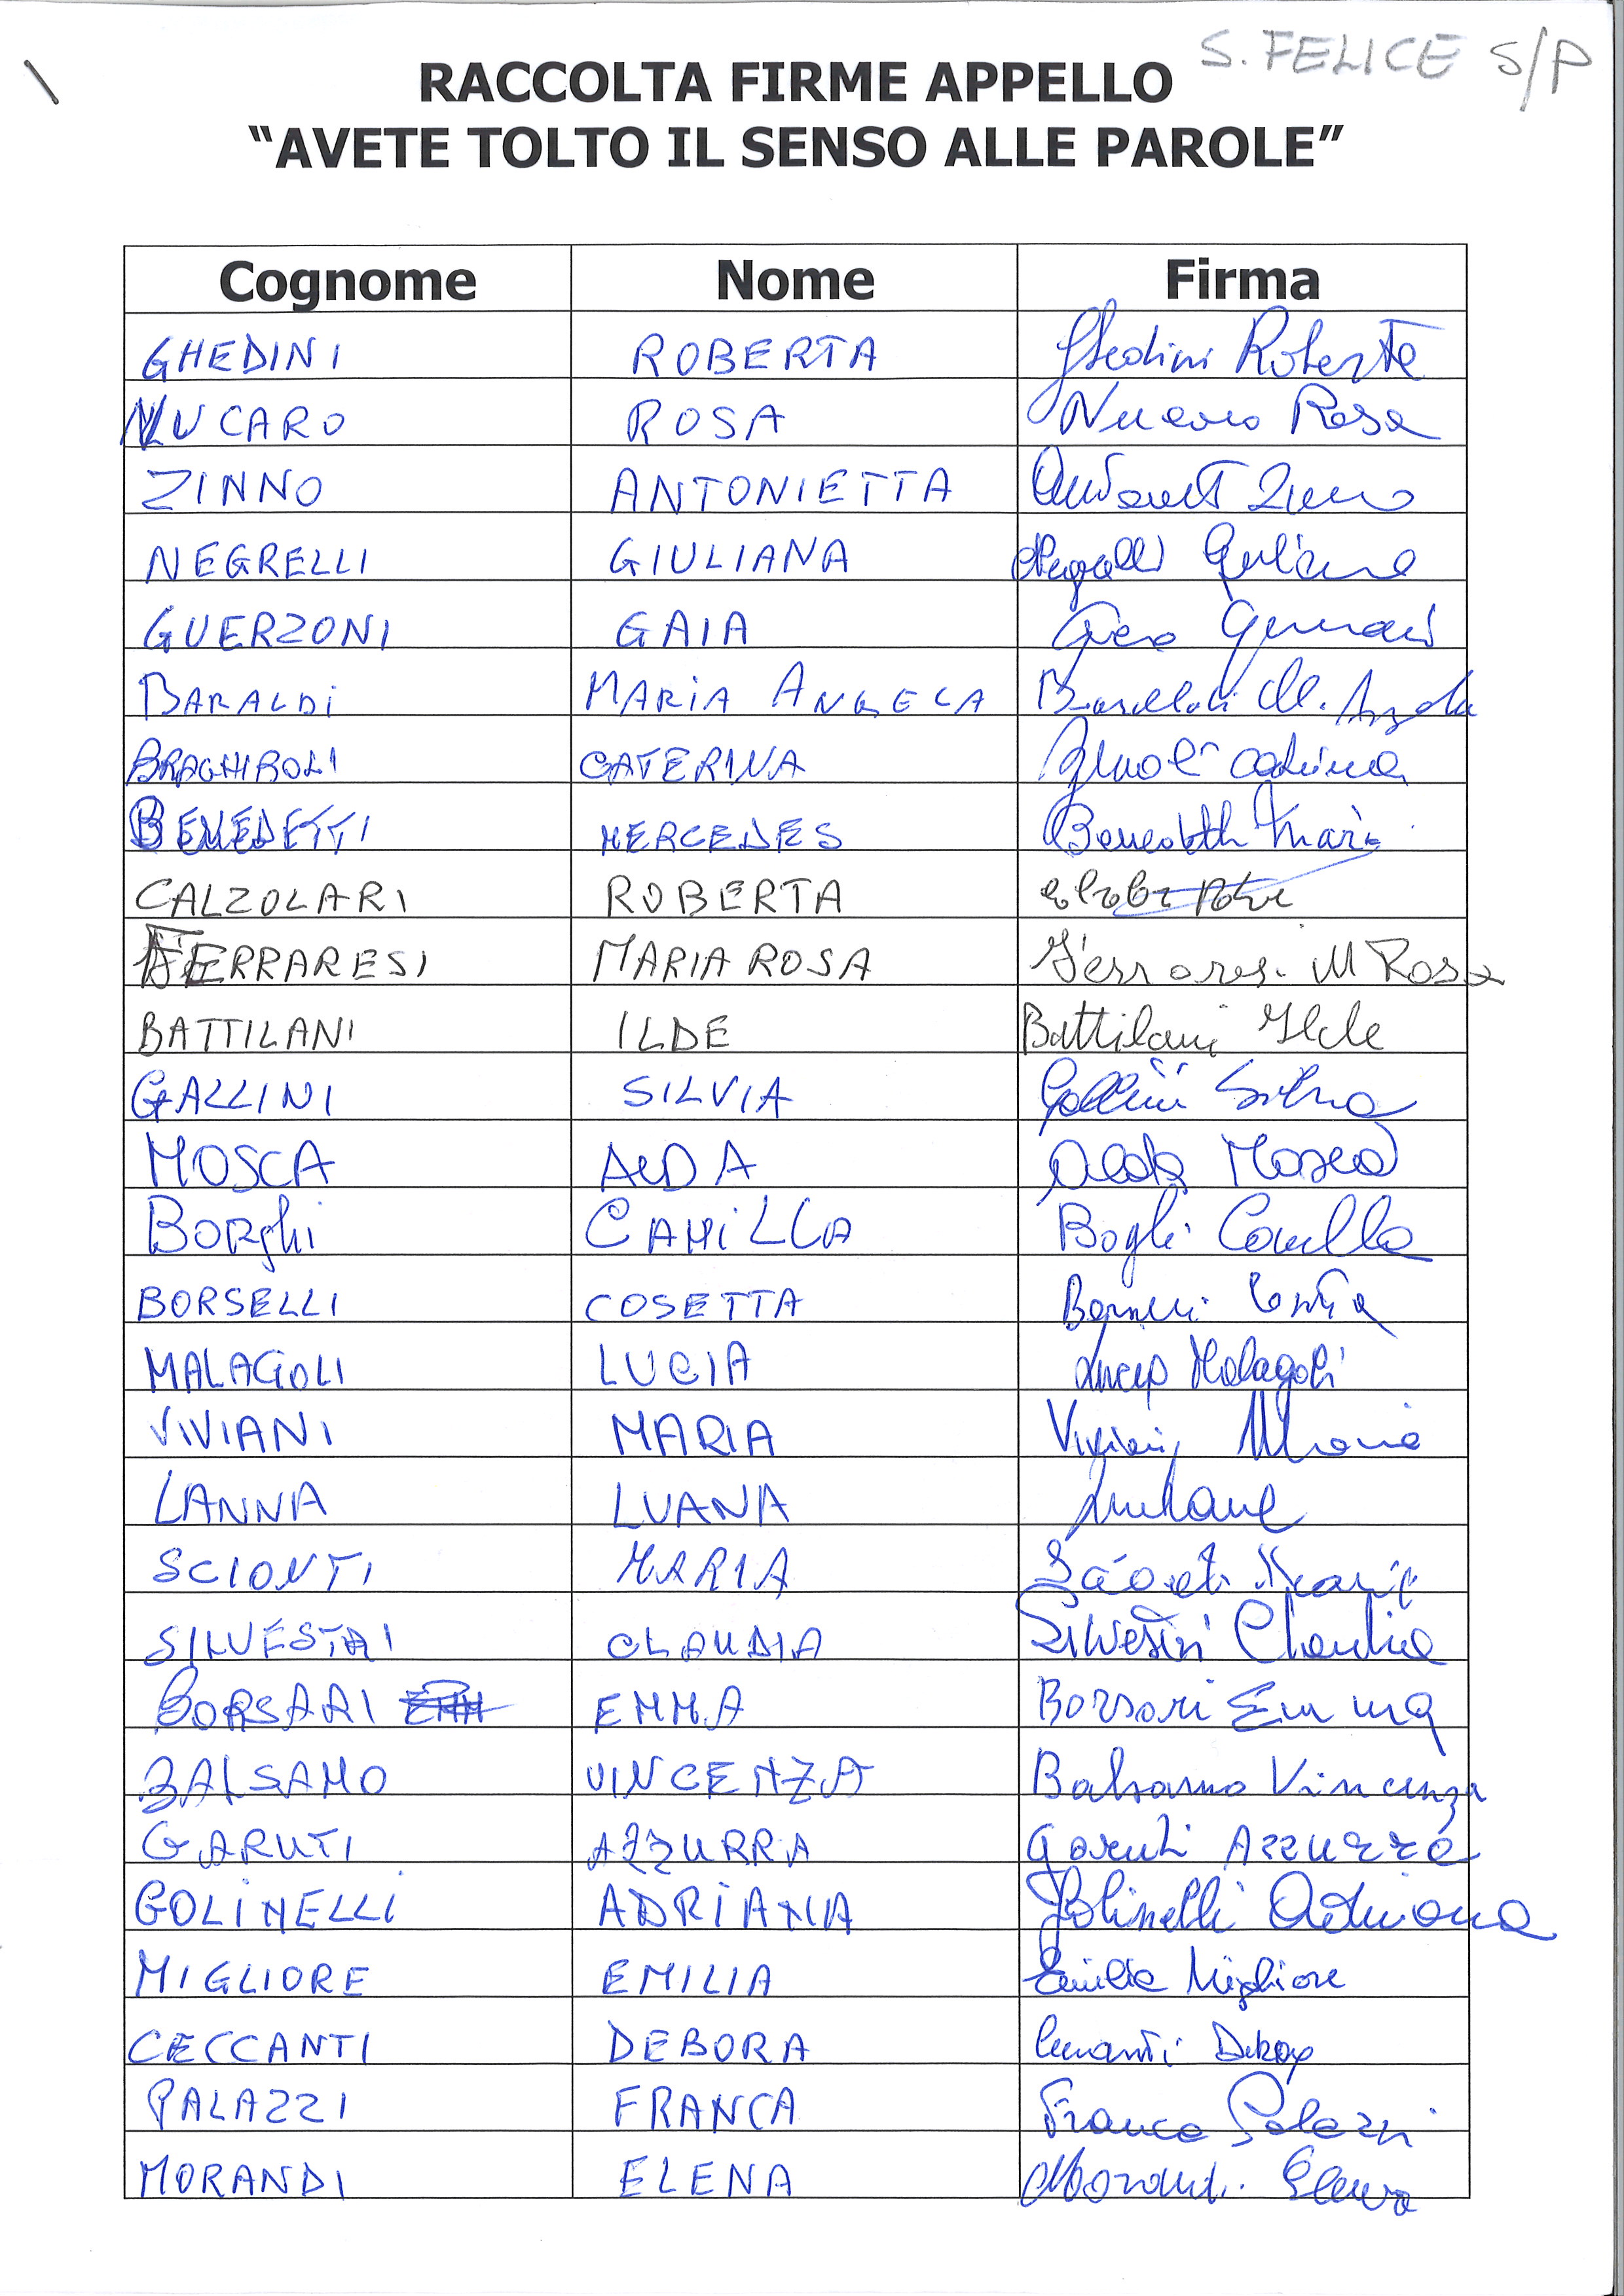 S. FELICE S/P
RACCOLTA FIRME APPELLO
“AVETE TOLTO IL SENSO ALLE PAROLE”
Cognome Nome Firma
GHEDINI ROBERTA Ghedini Roberta
NUCARO ROSA Nucaro Rosa
ZINNO ANTONIETTA Zinno
NEGRELLI GIULIANA Negrelli Giuliana
GUERZONI GAIA Gaia
BARALDi MARiA ANGELA Baraldi M. Angela
BRAGHIROLI CATERINA Caterina
BENEDETTI MERCEDES Benedetti
CALZOLARI ROBERTA
FERRARESI MARIA ROSA Ferraresi M Rosa
BATTILANI ILDE Battilani Ilde
GALLINI SILVIA Gallini Silvia
MOSCA ALDA Alda Mosca
BORghi CAMiLLA Borghi Camilla
BORSELLI COSETTA Borselli
MALAGOLI LUCIA Lucia Malagoli
VIVIANI MARIA Viviani Maria
LANNA LUANA
SCIONTI MARIA Scionti Maria
SILVESTRI CLAUDIA Silvestri Claudia
BORSARI EMMA Borsari Emma
BALSAMO VINCENZA Balsamo Vincenza
GARUTI AZZURRA Garuti Azzurra
GOLiNELLi ADRiANA Golinelli Adriana
MIGLIORE EMILIA Emilia Migliore
CECCANTI DEBORA Ceccanti Debora
PALAZZI FRANCA Franca Palazzi
MORANDI ELENA Morandi Elena